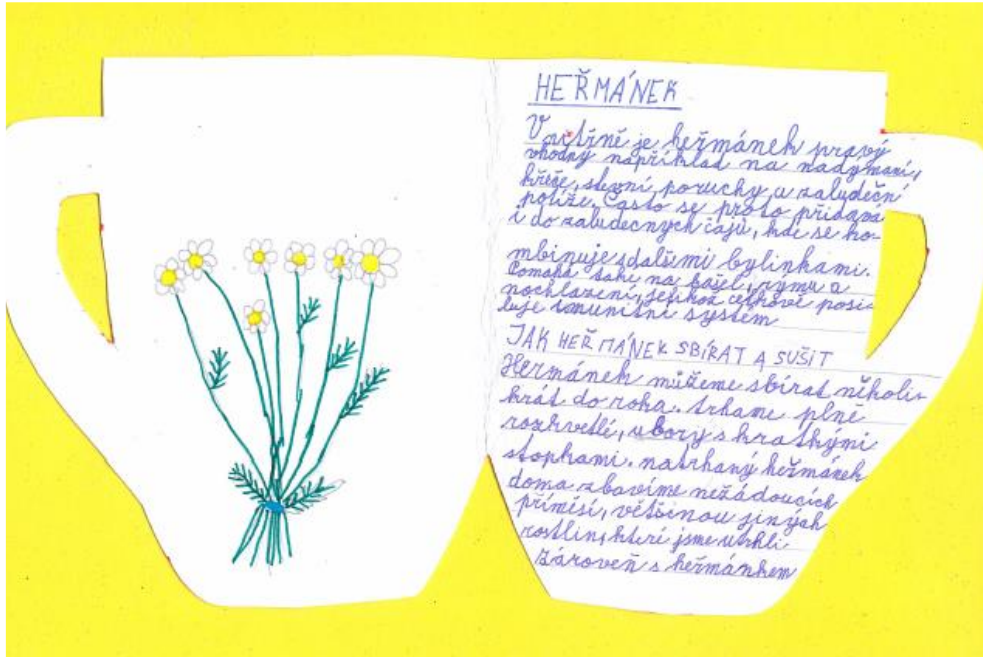 HEŘMÁNEK
Vnitřně je heřmánek pravý
vhodný například na nadýmaní,
křeče, slevní poruchy a zaludeční
potíže. Často se proto přidává
i do zaludecných čajů, kde se ko-
mbinuje s dalšími bylinkami.
Pomáhá také na kašel, rýmu a
nachlazení, jelikož celkově posi-
luje imunitní systém
JAK HEŘMÁNEK SBÍRAT A SUŠIT
Heřmánek můžeme sbírat několi-
krát do roka. trháme plně
rozkvetlé, ubory s krátkými
stopkami. natrhaný heřmánek
doma zbavíme nežádoucích
příměsí, většinou jiných
rostlin, které jsme utrhli
zároveň s heřmánkem